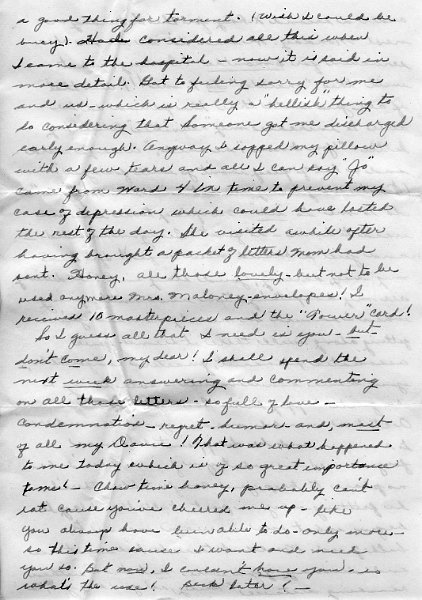 a good thing for torment. (Wish I could be
busy). Had considered all this when
I came to the hospital - now it is said in
more detail. Got to feeling sorry for me
and us - which is really a "hellish" thing to
do considering that someone got me discharged
early enough. Anyway I sopped my pillow
with a few tears and all I can say "Jo"
came from Ward 4 in time to prevent my
case of depression which could have lasted
the rest of the day. She visited awhile after
having brought a packet of letters Mom had
sent. Honey, all those lovely - but not to be
used anymore Mrs. Maloney - envelopes! I
received 10 masterpieces and the "Power" card!
So I guess all that I need is you - but -
don't come, my dear! I shall spend the
next week answering and commenting
on all those letters - so full of love -
condemnation - regret - humor - and, most
of all my Davie! That was what happened
to me today which is of so great importance
to me! - Chow time honey, probably can't
eat cause you've cheered me up - like
you always have been able to do - only more
so this time cause I want and need
you so. But now, I couldn't have you - so
what's the use! Back later! -